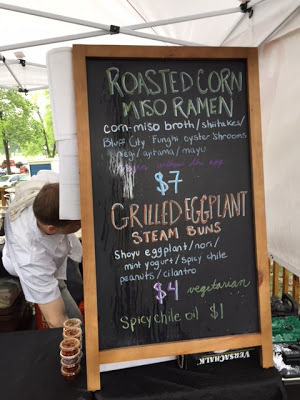 ROASTED CORN
MISO RAMEN
corn-miso broth/shiitakes/
Bluff City Funghi oyster 'shrooms
/ajitama/mayu
without the egg
$7
GRILLED EGGPLANT
STEAM BUNS
Shoyu eggplant/nori/
mint yogurt/spicy chile
peanuts/cilantro
$4 vegetarian
Spicy chile oil $1
VERSACHALK